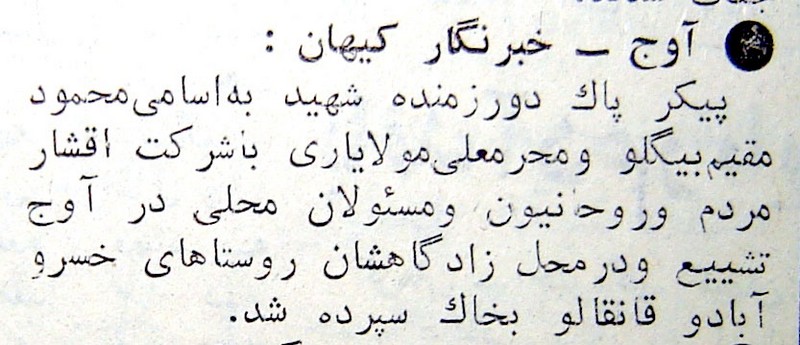 آوج ــ خبرنگار کیهان :
پیکر پاك دورزمنده شهید به‌اسامی‌محمود
مقیم‌بیگلو ومحرمعلی‌مولایاری باشرکت اقشار
مردم وروحانیون ومسئولان محلی در آوج
تشییع ودرمحل زادگاهشان روستاهای خسرو
آبادو قانقالو بخاك سپرده شد.